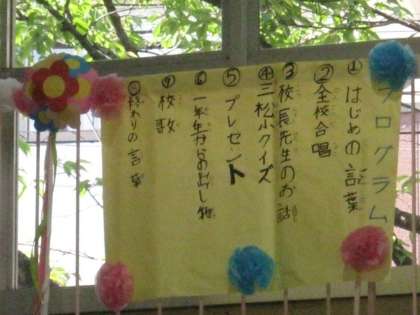 プログラム
①はじめの言葉
②全校合唱
③校長先生のお話
④三松小クイズ
⑤プレゼント
⑥一年生からのお返し物
⑦校歌
⑧終わりの言葉